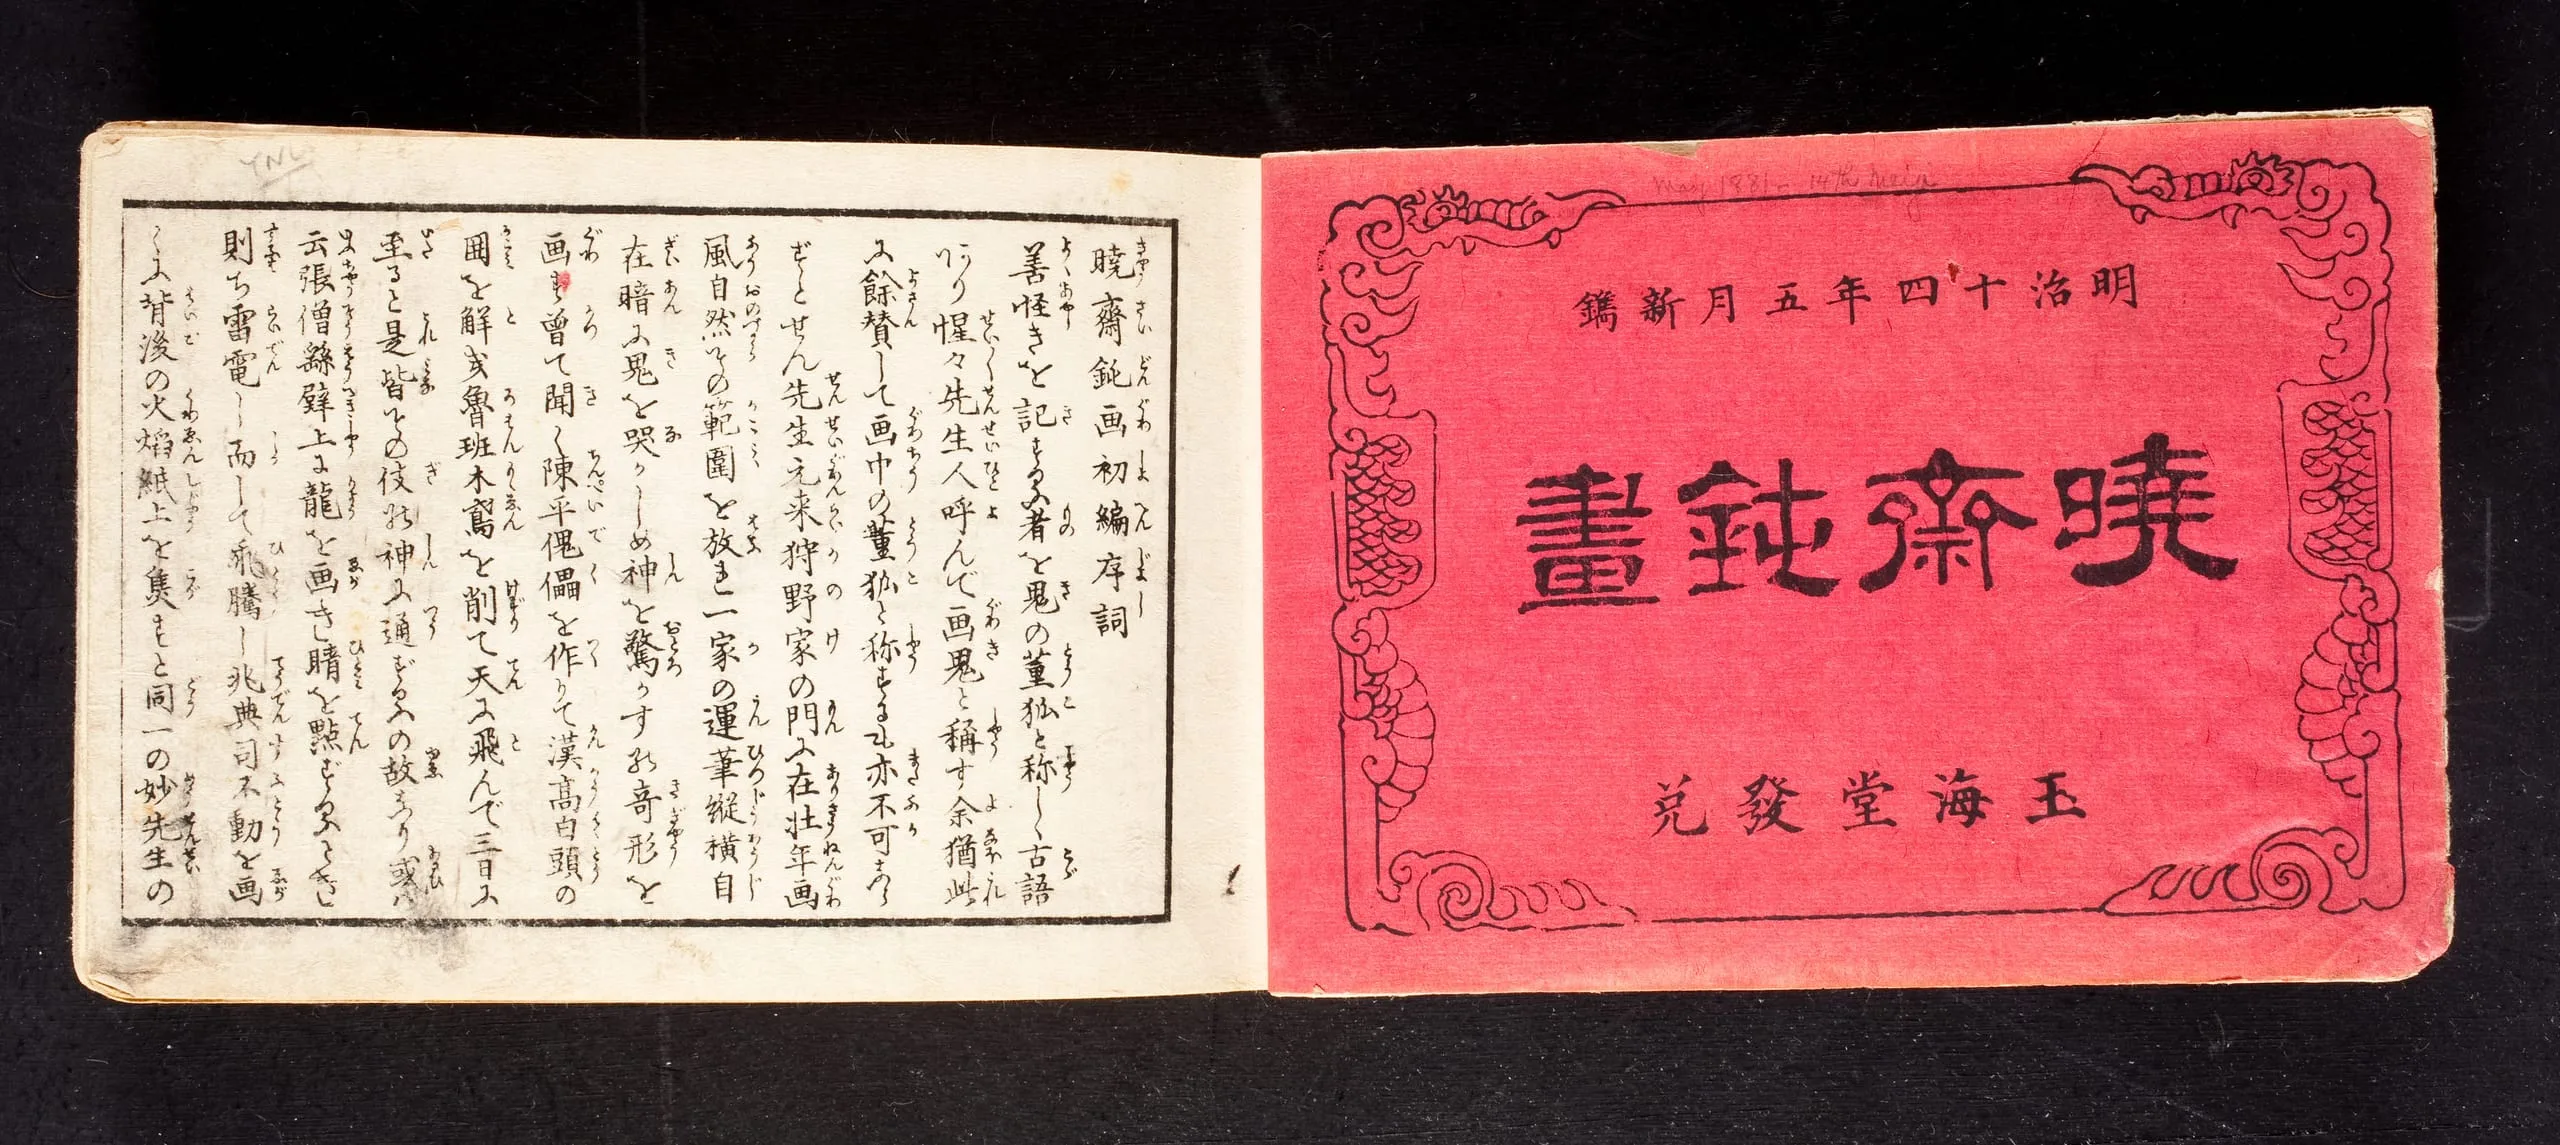 明治十四年五月新鐫
曉齋鈍畫
玉海堂發兌
May 1881 = 14th Meiji
YNL
曉齋鈍画初編序詞
善怪きを記する者を鬼の董狐と称し古語
惺々先生人呼んで画鬼と稱す余猶此
に餘賛して画中の董狐と称するも亦不可
ずとせん先生元来狩野家の門に在壮年画
風自然その範圍を放れ一家の運筆縦横自
在暗に鬼を哭かしめ神を驚かす the奇形を
画す曽て聞く陳平傀儡を作りて漢髙白頭の
囲を解き魯班木鳶を削て天に飛んで三日に
至ると是皆その伎の神に通ずるの故なり或ハ
云張僧繇壁上に龍を画き睛を點ずるときは
則ち雷電し而して飛騰し兆典司不動を画
くに背後の火焰紙上を焦すと同一の妙先生の